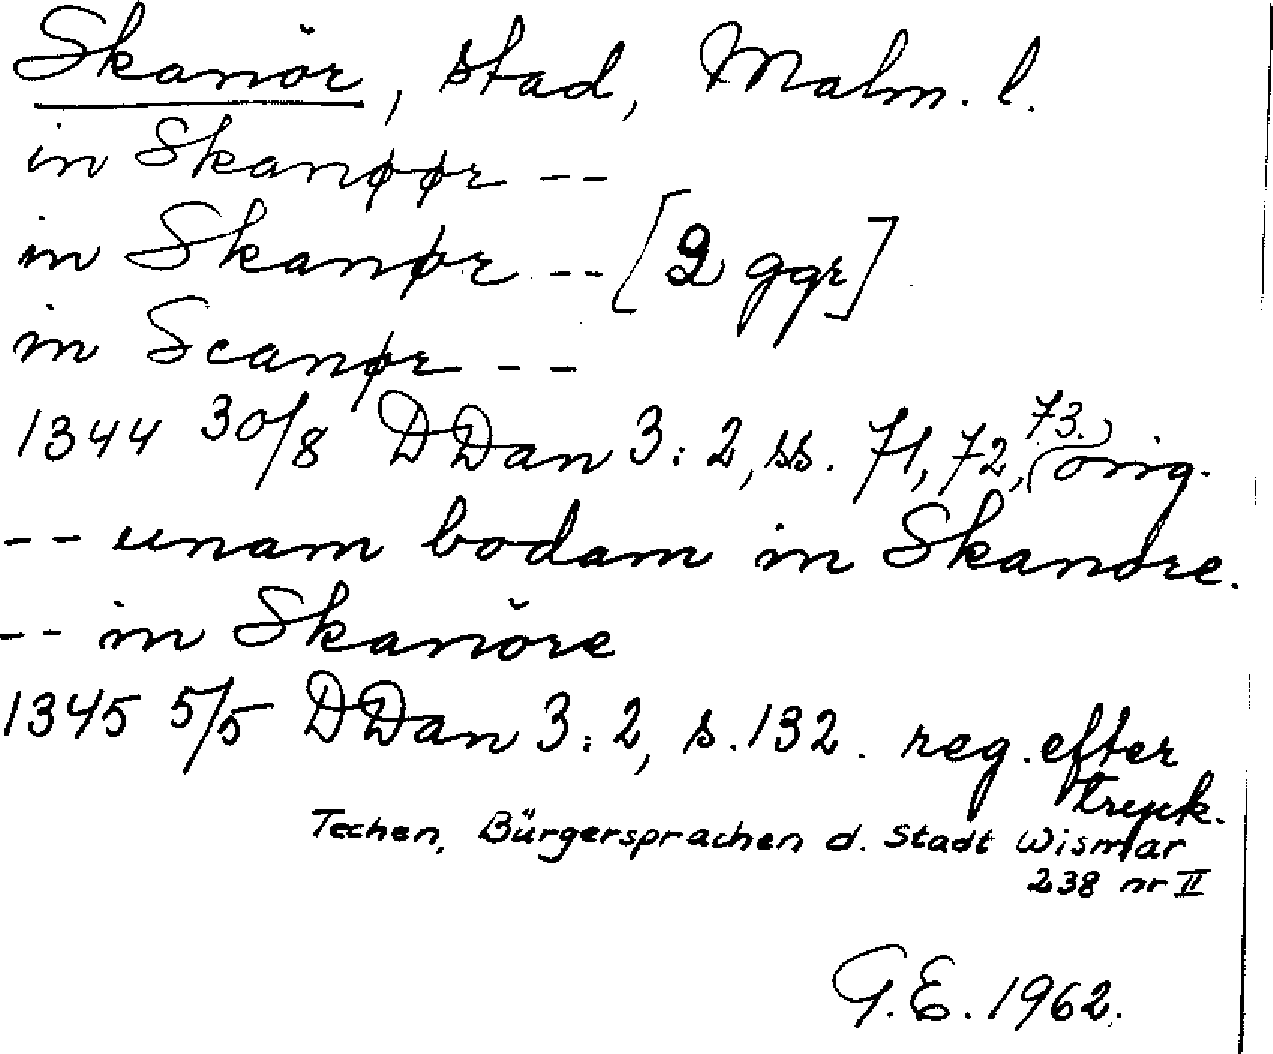 Skanör, stad, Malm. l.
in Skanøør --
in Skanør -- [2 ggr]
in Scanør --
1344 30/8 DDan 3:2, ss. 71, 72, 73. orig.
-- unam bodam in Skanore.
-- in Skanöre
1345 5/5 DDan 3:2, s. 132. reg. efter
tryck.
Techen, Bürgersprachen d. Stadt Wismar
238 nr II
G.E. 1962.